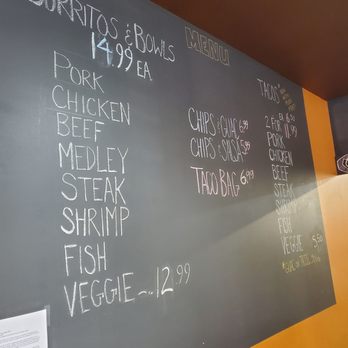 BURRITOS & BOWLS
14.99 EA
PORK
CHICKEN
BEEF
MEDLEY
STEAK
SHRIMP
FISH
VEGGIE - 12.99
MENU
CHIPS & GUAC 6.99
CHIPS & SALSA 5.99
TACO BAG 6.99
TACOS
EA 6.50
2 FOR 11.99
PORK
CHICKEN
BEEF
STEAK
SHRIMP
FISH
VEGGIE 5.50